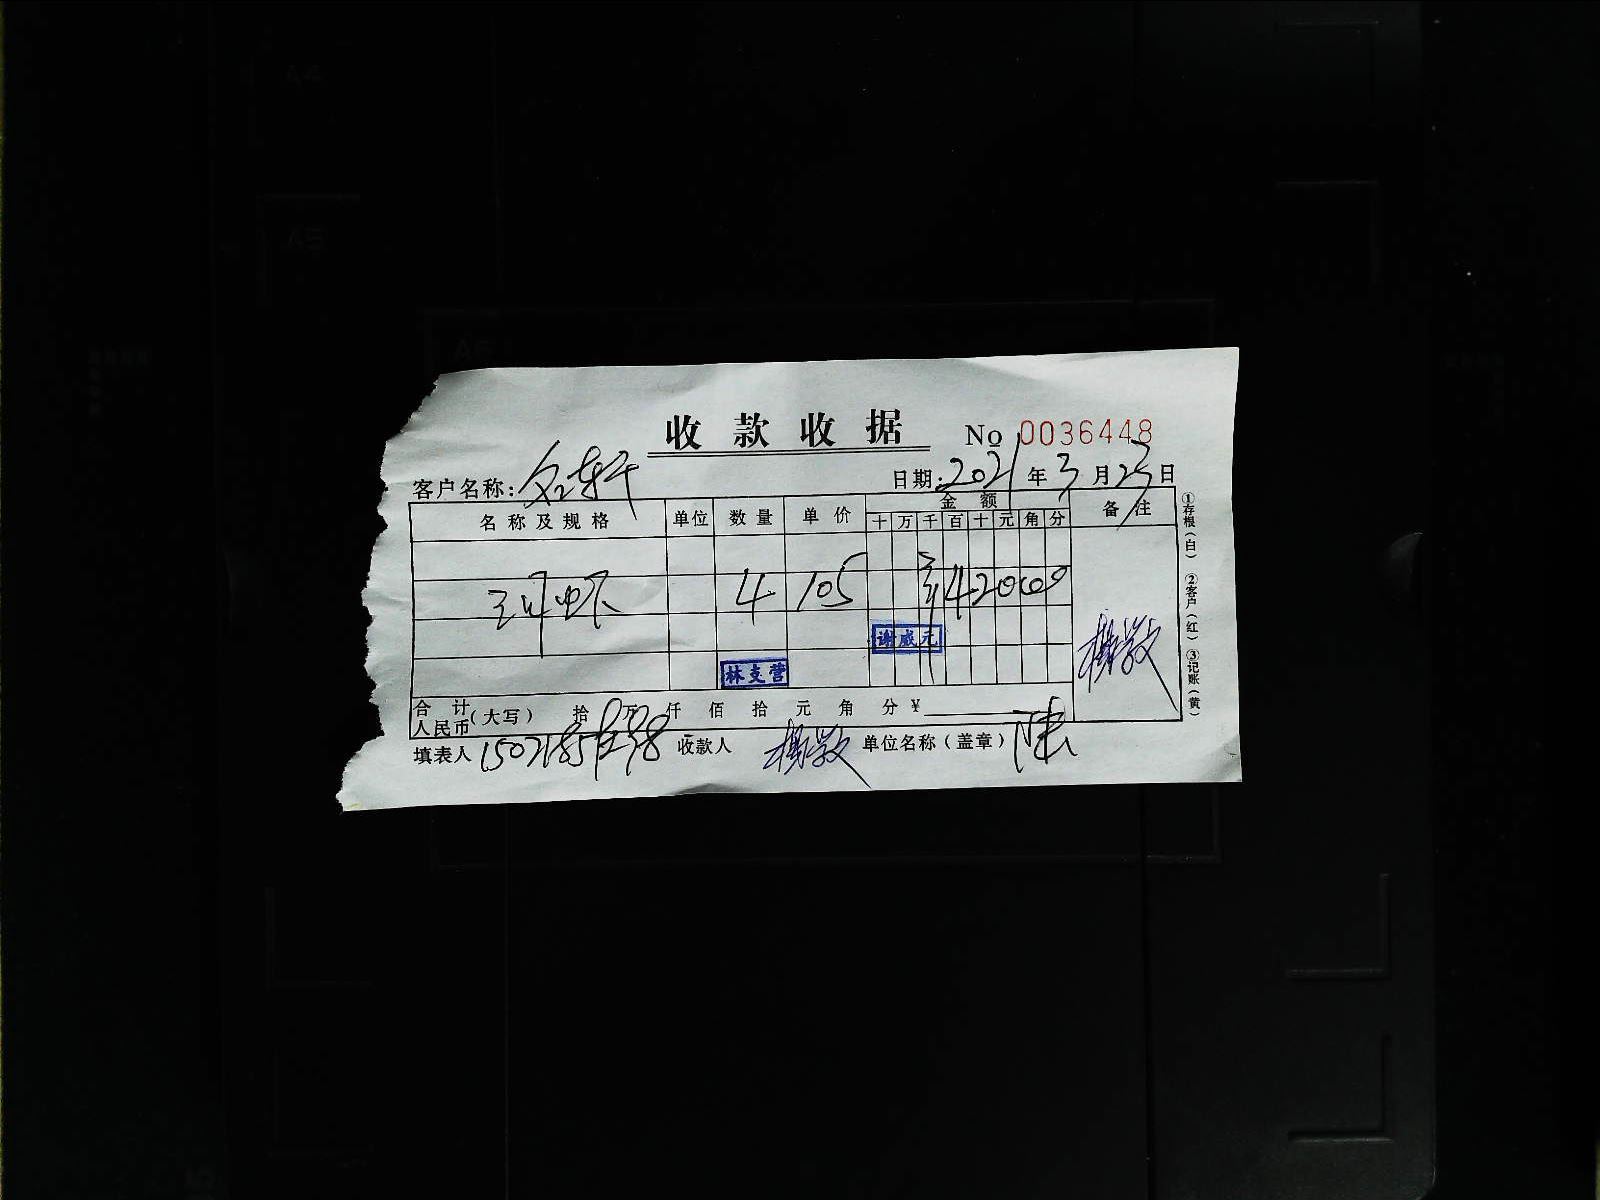 收款收据 No 0036448
客户名称: 日期: 2021 年 3 月 23 日
名称及规格 单位 数量 单价 金额 备注
十 万 千 百 十 元 角 分
4 105 42000
谢威元
林支营
合计人民币(大写) 拾 万 仟 佰 拾 元 角 分 ¥
填表人 收款人 单位名称(盖章) 陆
①存根(白) ②客户(红) ③记账(黄)